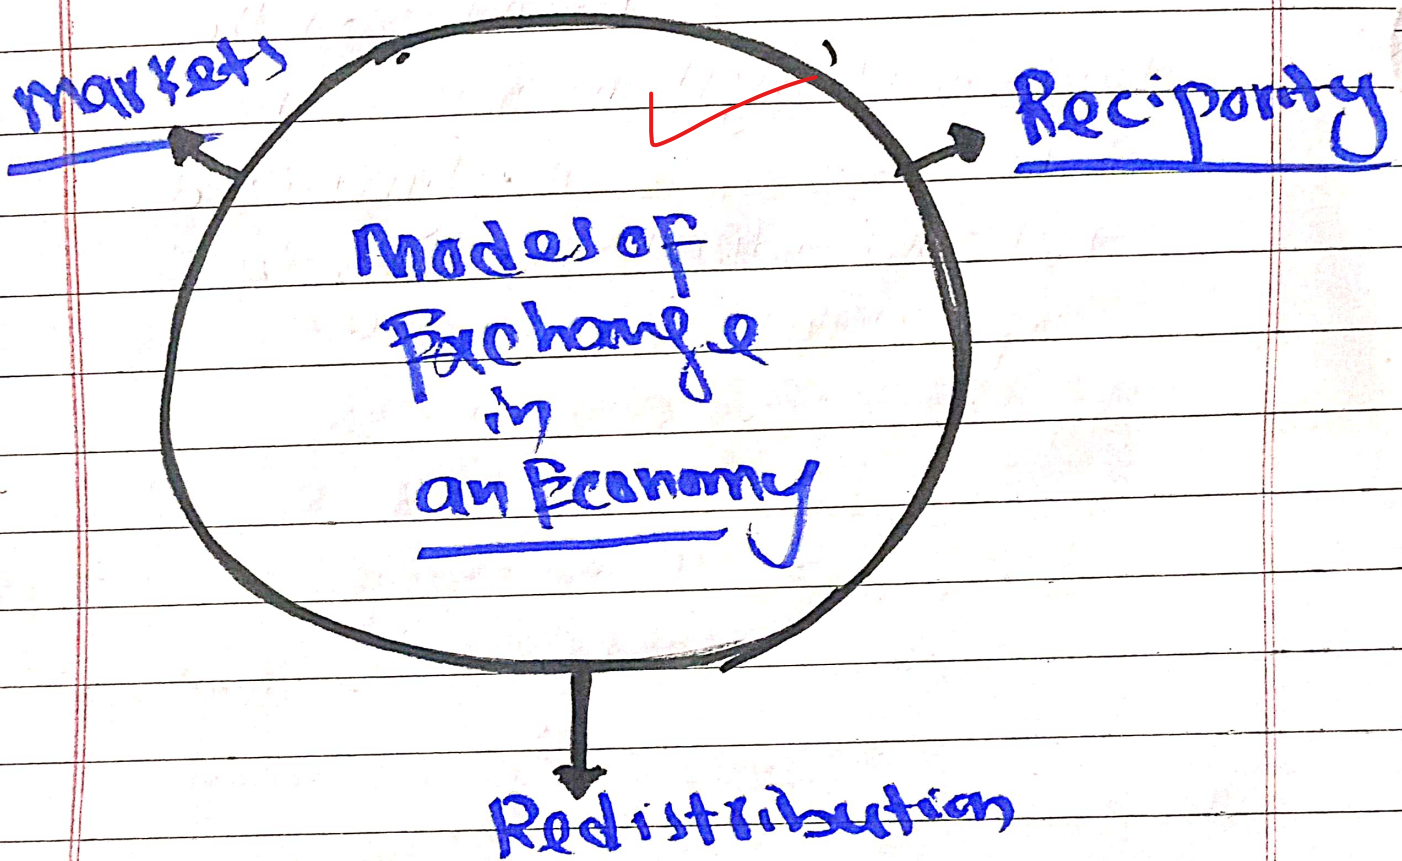 Markets
Recipority
Modes of
Exchange
in
an Economy
Redistribution